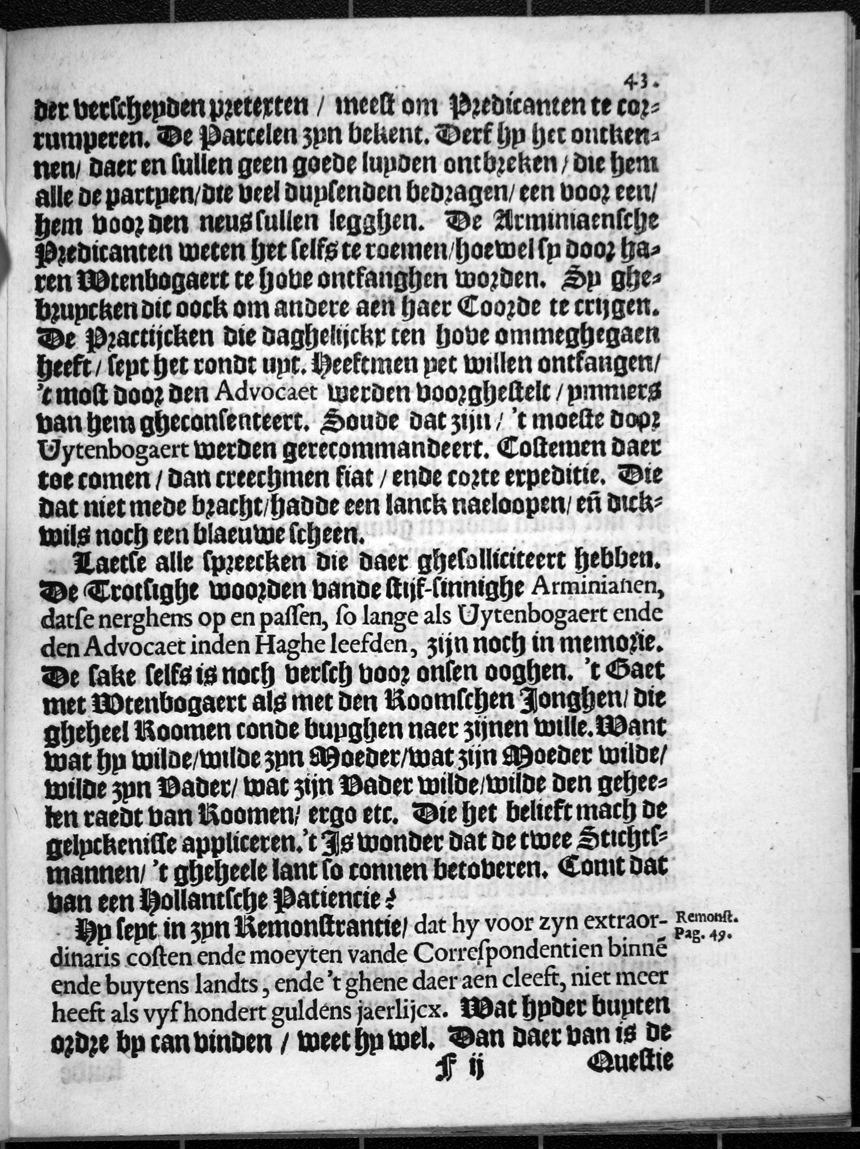 43.
der verscheyden pretexten / meest om Predicanten te cor-
rumperen. De Parcelen zyn bekent. Derf hy het ontken-
nen/ daer en sullen geen goede luyden ontbreken / die hem
alle de partyen/die veel duysenden bedragen/ een voor een/
hem voor den neus sullen legghen. De Arminiaensche
Predicanten weten het selfs te roemen/hoewel sy door ha-
ren Wtenbogaert te hove ontfanghen worden. Sy ghe-
bruycken dit oock om andere aen haer Coorde te crijgen.
De Practijcken die daghelijckx ten hove ommeghegaen
heeft / seyt het rondt uyt. Heeftmen yet willen ontfangen/
't most door den Advocaet werden voorghestelt / ymmers
van hem gheconsenteert. Soude dat zijn / 't moeste door
Uytenbogaert werden gerecommandeert. Costemen daer
toe comen / dan creechmen fiat / ende corte expeditie. Die
dat niet mede bracht/hadde een lanck naeloopen/ eñ dick-
wils noch een blaeuwe scheen.
Laetse alle spreecken die daer ghesolliciteert hebben.
De Trotsighe woorden vande stijf-sinnighe Arminianen,
datse nerghens op en passen, so lange als Uytenbogaert ende
den Advocaet inden Haghe leefden, zijn noch in memorie.
De sake selfs is noch versch voor onsen ooghen. 't Gaet
met Wtenbogaert als met den Roomschen Jonghen/ die
gheheel Roomen conde buyghen naer zijnen wille. Want
wat hy wilde/wilde zyn Moeder/wat zijn Moeder wilde/
wilde zyn Vader/ wat zijn Vader wilde/wilde den gehee-
len raedt van Roomen/ ergo etc. Die het belieft mach de
gelyckenisse appliceren. 't Is wonder dat de twee Stichts-
mannen/ 't gheheele lant so connen betoveren. Comt dat
van een Hollantsche Patiencie?
Hy seyt in zyn Remonstrantie/ dat hy voor zyn extraor-
dinaris costen ende moeyten vande Correspondentien binnē
ende buytens landts, ende 't ghene daer aen cleeft, niet meer
heeft als vyf hondert guldens jaerlijcx. Wat hyder buyten
ordre by can vinden / weet hy wel. Dan daer van is de
Remonst.
Pag. 49.
F ij
Questie